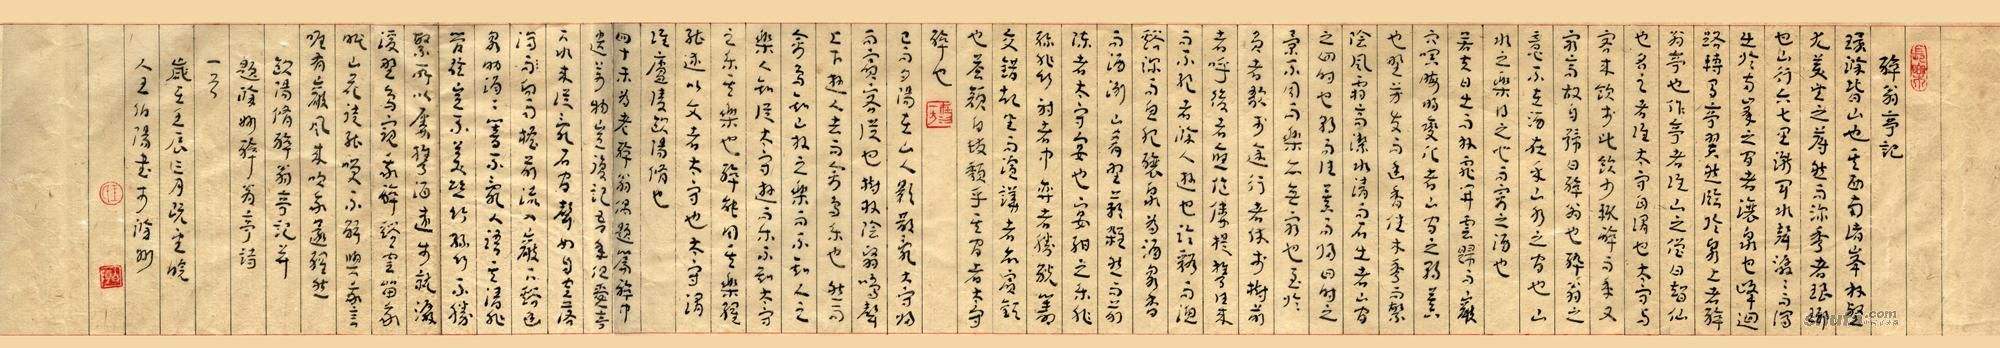 醉翁亭記
環滁皆山也其西南諸峯林壑
尤美望之蔚然而深秀者琅琊
也山行六七里漸聞水聲潺潺而瀉
出於兩峯之間者釀泉也峰迴
路轉有亭翼然臨於泉上者醉
翁亭也作亭者誰山之僧曰智仙
也名之者誰太守自謂也太守與
客來飲於此飲少輒醉而年又
最高故自號曰醉翁也醉翁之
意不在酒在乎山水之間也山
水之樂得之心而寓之酒也
若夫日出而林霏開雲歸而巖
穴暝晦明變化者山間之朝暮
也野芳發而幽香佳木秀而繁
陰風霜高潔水清而石出者山間
之四時也朝而往暮而歸四時之
景不同而樂亦無窮也至於
負者歌於途行者休於樹前
者呼後者應傴僂提攜往來
而不絕者滁人遊也臨谿而漁
谿深而魚肥釀泉為酒泉香
而酒洌山肴野蔌雜然而前
陳者太守宴也宴酣之樂非
絲非竹射者中弈者勝觥籌
交錯起坐而諠譁者衆賓歡
也蒼顏白髮頹乎其間者太守
醉也
已而夕陽在山人影散亂太守歸
而賓客從也樹林陰翳鳴聲
上下遊人去而禽鳥樂也然而
禽鳥知山林之樂而不知人之
樂人知從太守遊而樂不知太守
之樂其樂也醉能同其樂醒
能述以文者太守也太守謂
誰廬陵歐陽脩也
四十未為老醉翁偶題篇醉中
遺萬物豈復記吾年但愛亭
下水來從亂石間聲如自空落
瀉向兩檐前流入巖下谿幽
泉助涓涓響不亂人語其清非
管絃豈不美絲竹絲竹不勝
繁所以屢攜酒遠步就潺
湲野鳥窺我醉谿雲留我
眠山花徒能笑不解與我言
惟有巖風來吹我還醒然
歐陽脩醉翁亭記并
題滁州醉翁亭詩
一首
歲在壬辰三月既望皖
人王伯陽書於滁州